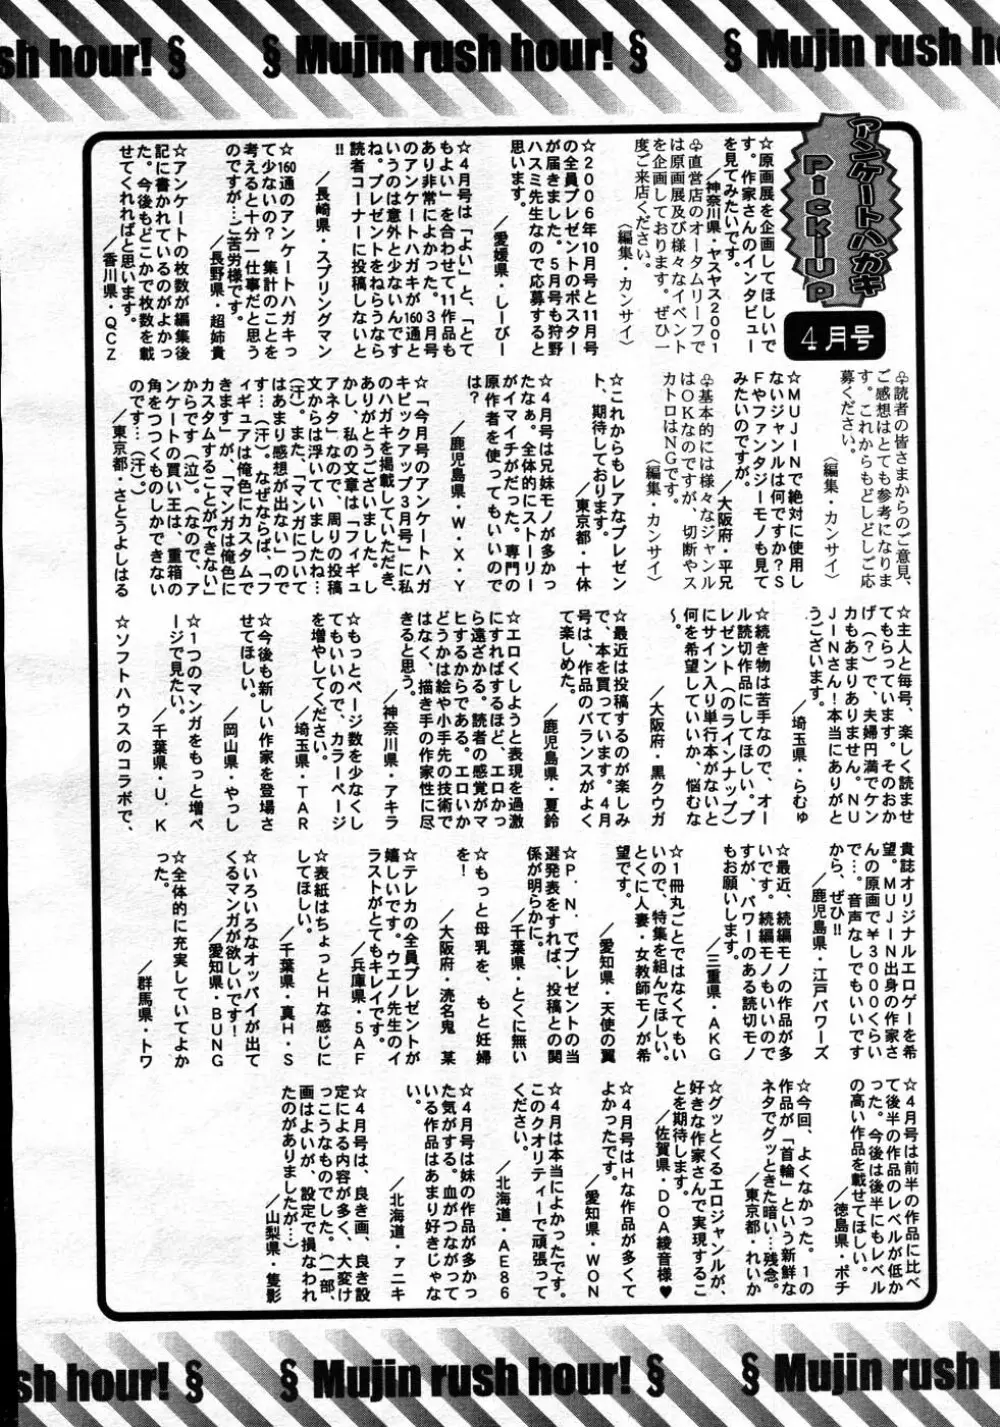 sh hour! § § Mujin rush hour! § § Mujin rush ho
アンケートハガキ
PickUp
4月号
☆原画展を企画してほしいで
す。作家さんのインタビュー
を見てみたいです。
／神奈川県・ヤスヤス2001
♧直営店のオータムリーフで
は原画展及び様々なイベント
を企画しております。ぜひ一
度ご来店ください。
（編集・カンサイ）
☆2006年10月号と11月号
の全員プレゼントのポスター
が届きました。5月号も狩野
ハスミ先生なので応募すると
思います。
／愛媛県・しーぴー
☆4月号は「よい」と、「とて
もよい」を合わせて11作品も
あり非常によかった。3月号
のアンケートハガキが160通と
いうのは意外と少ないんです
ね。プレゼントをねらうなら
読者コーナーに投稿しないと
!!
／長崎県・スプリングマン
☆160通のアンケートハガキっ
て少ないの？　集計のことを
考えると十分一仕事だと思う
のですが…ご苦労様です。
／長野県・超姉貴
☆アンケートの枚数が編集後
記に書かれているのがよかっ
た。今後もどこかで枚数を載
せてくれればと思います。
／香川県・QCZ
♧読者の皆さまからのご意見、
ご感想はとても参考になりま
す。これからもどしどしご応
募ください。
（編集・カンサイ）
☆MUJINで絶対に使用し
ないジャンルは何ですか？S
Fやファンタジーモノも見て
みたいのですが。
／大阪府・平兄
♧基本的には様々なジャンル
はOKなのですが、切断やス
カトロはNGです。
（編集・カンサイ）
☆これからもレアなプレゼン
ト、期待しております。
／東京都・十休
☆4月号は兄妹モノが多かっ
たなぁ。全体的にストーリー
がイマイチだった。専門の
原作者を使ってもいいので
は？
／鹿児島県・W・X・Y
☆「今月号のアンケートハガ
キピックアップ3月号」に私
のハガキを掲載していただき、
ありがとうございました。し
かし、私の文章は「フィギュ
アネタ」なので、周りの投稿
文からは浮いていましたね…
（汗）。また、「マンガについて
はあまり感想が出ない」ので
す…（汗）。なぜならば、「フ
ィギュアは俺色にカスタムで
きます」が、「マンガは俺色に
カスタムすることができない」
からです（泣）。（なので、ア
ンケートの買い王は、重箱の
角をつつくものしかできない
のです…（汗）。
／東京都・さとうよしはる
☆主人と毎号、楽しく読ませ
てもらっています。そのおか
げ（？）で、夫婦円満でケン
カもあまりありません。MU
JINさん！本当にありがと
うございます。
／埼玉県・らむゅ
☆続き物は苦手なので、オー
ル読切作品にしてほしい。プ
レゼント（のラインナップ）
にサイン入り単行本がないと
何を希望していいか、悩むな
～。
／大阪府・黒クウガ
☆最近は投稿するのが楽しみ
で、本を買っています。4月
号は、作品のバランスがよく
て楽しめた。
／鹿児島県・夏鈴
☆エロくしようと表現を過激
にすればするほど、エロかっ
ら遠ざかる。読者の感覚がマ
ヒするからである。エロいか
どうかは絵や小手先の技術で
はなく、描き手の作家性に尽
きると思う。
／神奈川県・アキラ
☆もっとページ数を少なくし
てもいいので、カラーページ
を増やしてください。
／埼玉県・TAR
☆今後も新しい作家を登場さ
せてほしい。
／岡山県・やっし
☆1つのマンガをもっと増ペ
ージで見たい。
／千葉県・U．K
☆ソフトハウスのコラボで、
貴誌オリジナルエロゲーを希
望。MUJIN出身の作家さ
んの原画で￥3000くらい
で…。音声なしでもいいです
から、ぜひ!!
／鹿児島県・江戸パワーズ
☆最近、続編モノの作品が多
いです。続編モノもいいので
すが、パワーのある読切モノ
もお願いします。
／三重県・AKG
☆1冊丸ごとではなくてもい
いので、特集を組んでほしい。
とくに人妻・女教師モノが希
望です。
／愛知県・天使の翼
☆P．N．でプレゼントの当
選発表をすれば、投稿との関
係が明らかに。
／千葉県・とくに無い
☆もっと母乳を、もと妊婦
を！
／大阪府・洸名鬼　某
☆テレカの全員プレゼントが
嬉しいです。ウエノ先生のイ
ラストがとてもキレイです。
／兵庫県・5AF
☆表紙はちょっとHな感じに
してほしい。
／千葉県・真H・S
☆いろいろなオッパイが出て
くるマンガが欲しいです！
／愛知県・BUNG
☆全体的に充実していてよか
った。
／群馬県・トワ
☆4月号は前半の作品に比べ
て後半の作品のレベルが低か
った。今後は後半にもレベル
の高い作品を載せてほしい。
／徳島県・ポチ
☆今回、よくなかった。1の
作品が「首輪」という新鮮な
ネタでグッときた暗い…残念。
／東京都・れいか
☆グッとくるエロジャンルが、
好きな作家さんで実現するこ
とを期待します。
／佐賀県・DOA綾音様♥
☆4月号はHな作品が多くて
よかったです。
／愛知県・WON
☆4月は本当によかったです。
このクオリティーで頑張って
ください。
／北海道・AE86
☆4月号は妹の作品が多かっ
た気がする。血がつながって
いる作品はあまり好きじゃな
い。
／北海道・アニキ
☆4月号は、良き画、良き設
定による内容が多く、大変け
っこうなものでした。（一部、
画はよいが、設定で損なわれ
たのがありましたが…）
／山梨県・隻影
sh hour! § § Mujin rush hour! § § Mujin rush h